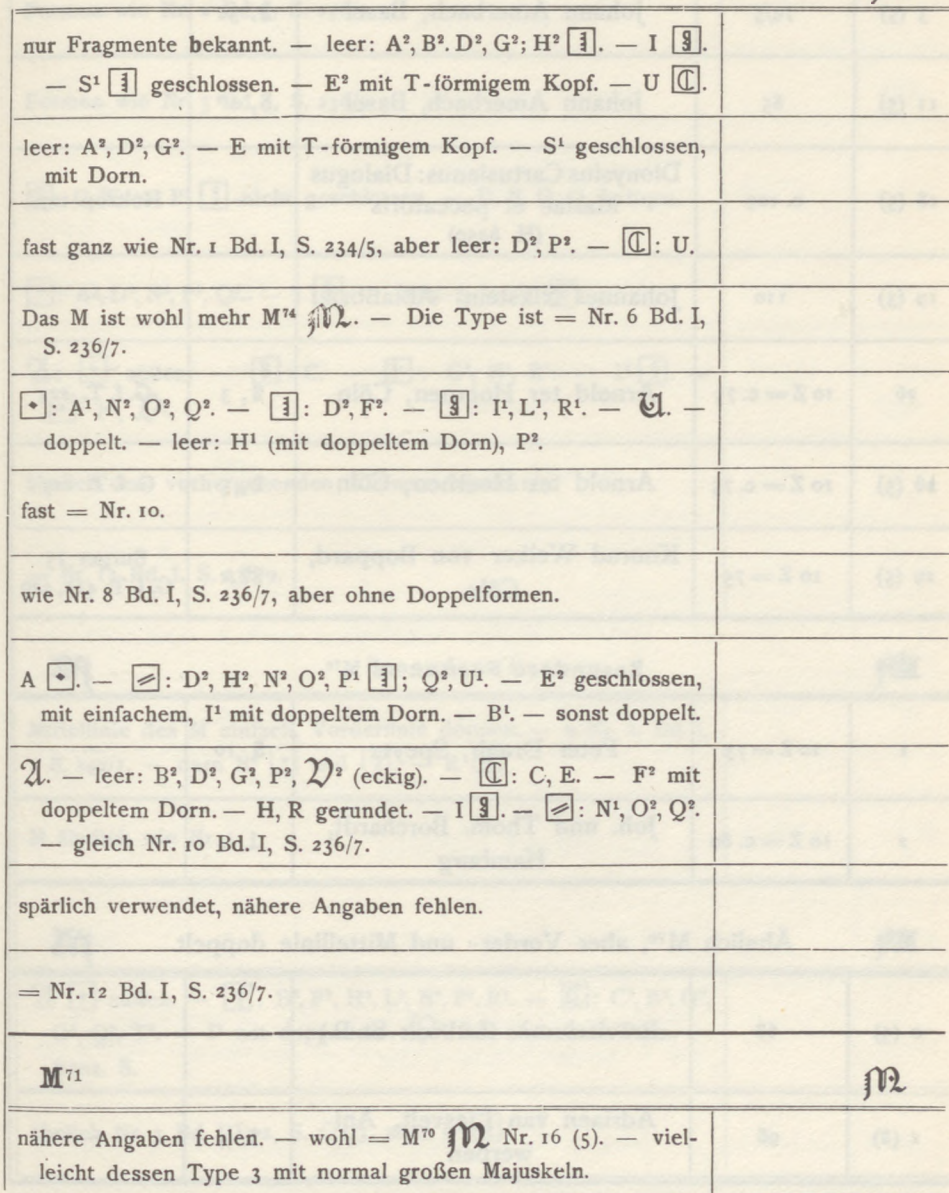 nur Fragmente bekannt. — leer: A², B². D², G²; H² . — I .
— S¹ geschlossen. — E² mit T-förmigem Kopf. — U .
leer: A², D², G². — E mit T-förmigem Kopf. — S¹ geschlossen,
mit Dorn.
fast ganz wie Nr. 1 Bd. I, S. 234/5, aber leer: D², P². — : U.
Das M ist wohl mehr M⁷⁴ 𝔐. — Die Type ist = Nr. 6 Bd. I,
S. 236/7.
: A¹, N², O², Q². — : D², F². — : I¹, L¹, R¹. — 𝔄. —
doppelt. — leer: H¹ (mit doppeltem Dorn), P².
fast = Nr. 10.
wie Nr. 8 Bd. I, S. 236/7, aber ohne Doppelformen.
A . — : D², H², N², O², P¹ ; Q², U¹. — E² geschlossen,
mit einfachem, I¹ mit doppeltem Dorn. — B¹. — sonst doppelt.
𝔄. — leer: B², D², G², P², 𝔙² (eckig). — : C, E. — F² mit
doppeltem Dorn. — H, R gerundet. — I . — : N¹, O², Q².
— gleich Nr. 10 Bd. I, S. 236/7.
spärlich verwendet, nähere Angaben fehlen.
= Nr. 12 Bd. I, S. 236/7.
M⁷¹ 𝔐
nähere Angaben fehlen. — wohl = M⁷⁰ 𝔐 Nr. 16 (5). — viel-
leicht dessen Type 3 mit normal großen Majuskeln.